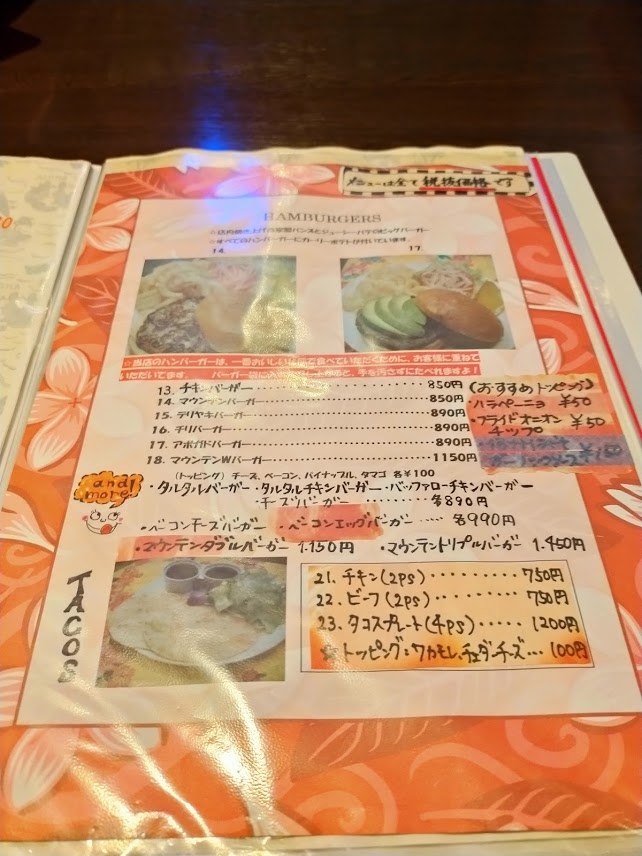 メニューは全て税抜価格です
HAMBURGERS
☆すべてのハンバーガーにカーリーポテトが付いています。
14.
17.
☆当店のハンバーガーは、一番おいしい
お客様に重ねて
いただいてます。
手を汚さずにたべれますよ!
13. チキンバーガー 850円
14. マウンテンバーガー 850円
15. テリヤキバーガー 890円
16. チリバーガー 890円
17. アボガドバーガー 890円
18. マウンテンWバーガー 1150円
(トッピング) チーズ、ベーコン、パイナップル、タマゴ 各¥100
(おすすめトッピング)
・ハラペーニョ ¥50
・フライドオニオン ¥50
チップ
and more
・タルタルバーガー ・タルタルチキンバーガー ・バッファローチキンバーガー
・チーズバーガー ・・・・・・ 各890円
・ベーコンチーズバーガー ・ベーコンエッグバーガー ・・・・ 各990円
・マウンテンダブルバーガー 1.150円 ・マウンテントリプルバーガー 1.450円
TACOS
21. チキン(2ps) ・・・・・・・・・ 750円
22. ビーフ(2ps) ・・・・・・・・・ 750円
23. タコスプレート(4ps) ・・・・・ 1200円
☆トッピング:ワカモレ、チェダーチーズ・・・ 100円